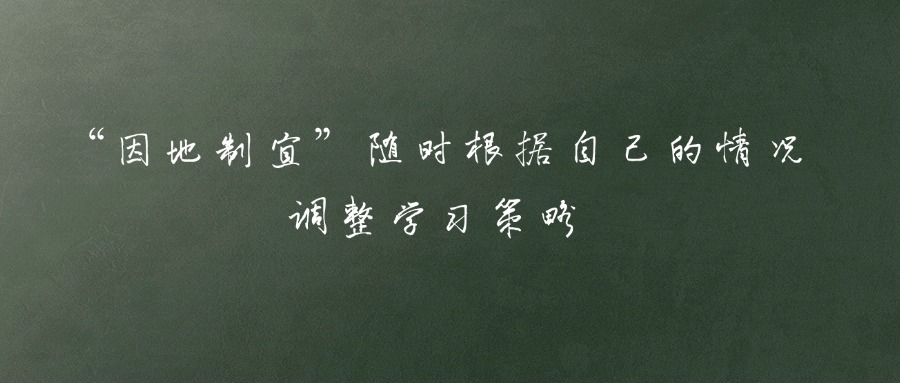 “因地制宜”随时根据自己的情况
调整学习策略